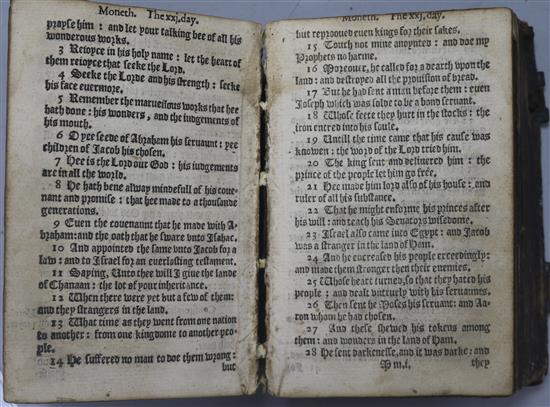 Moneth. The xxj. day.
prayse him : and let your talking bee of all his
wonderous works.
3 Reioyce in his holy name : let the heart of
them reioyce that seeke the Lord.
4 Seeke the Lorde and his strength : seeke
his face euermore.
5 Remember the marueilous works that hee
hath done : his wonders, and the iudgements of
his mouth.
6 O yee seede of Abraham his seruaunt : yee
children of Jacob his chosen.
7 Hee is the Lord our God : his iudgements
are in all the world.
8 He hath bene alway mindefull of his coue-
nant and promise : that hee made to a thousande
generations.
9 Euen the couenannt that he made with A-
braham: and the oath that he sware vnto Isahac.
10 And appointed the same vnto Jacob for a
law : and to Israel for an euerlasting testament.
11 Saying, Unto thee will I giue the lande
of Chanaan : the lot of your inheritance.
12 When there were yet but a few of them:
and they strangers in the land.
13 What time as they went from one nation
to another : from one kingdome to another peo-
ple.
14 He suffered no man to doe them wrong:
but
Moneth. The xxj. day.
but reprooued euen kings for their sakes.
15 Touch not mine anoynted : and doe my
Prophets no harme.
16 Moreouer, he called for a dearth vpon the
land : and destroyed all the prouision of bread.
17 But he had sent a man before them : euen
Joseph which was solde to be a bond seruant.
18 Whose feete they hurt in the stocks : the
iron entred into his soule.
19 Untill the time came that his cause was
knowen : the word of the Lord tried him.
20 The king sent and deliuered him : the
prince of the people let him go free.
21 Hee made him lord also of his house : and
ruler of all his substance.
22 That he might enforme his princes after
his will : and teach his Senators wisedome.
23 Israel also came into Egypt : and Jacob
was a stranger in the land of Ham.
24 And he encreased his people exceedingly:
and made them stronger then their enemies.
25 Whose heart turned, so that they hated his
people : and dealt vntruly with his seruaunts.
26 Then sent he Moses his seruant : and Aa-
ron whom he had chosen.
27 And these shewed his tokens among
them : and wonders in the land of Ham.
28 He sent darkenesse, and it was darke : and
M m.i. they